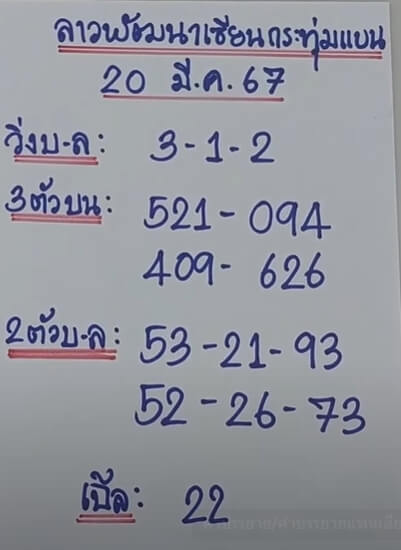 ลาวพัฒนาเซียนกระทุ่มแบน
20 มี.ค. 67
วิ่งบ-ล: 3-1-2
3ตัวบน: 521-094
409-626
2ตัวบ-ล: 53-21-93
52-26-73
เบิ้ล: 22